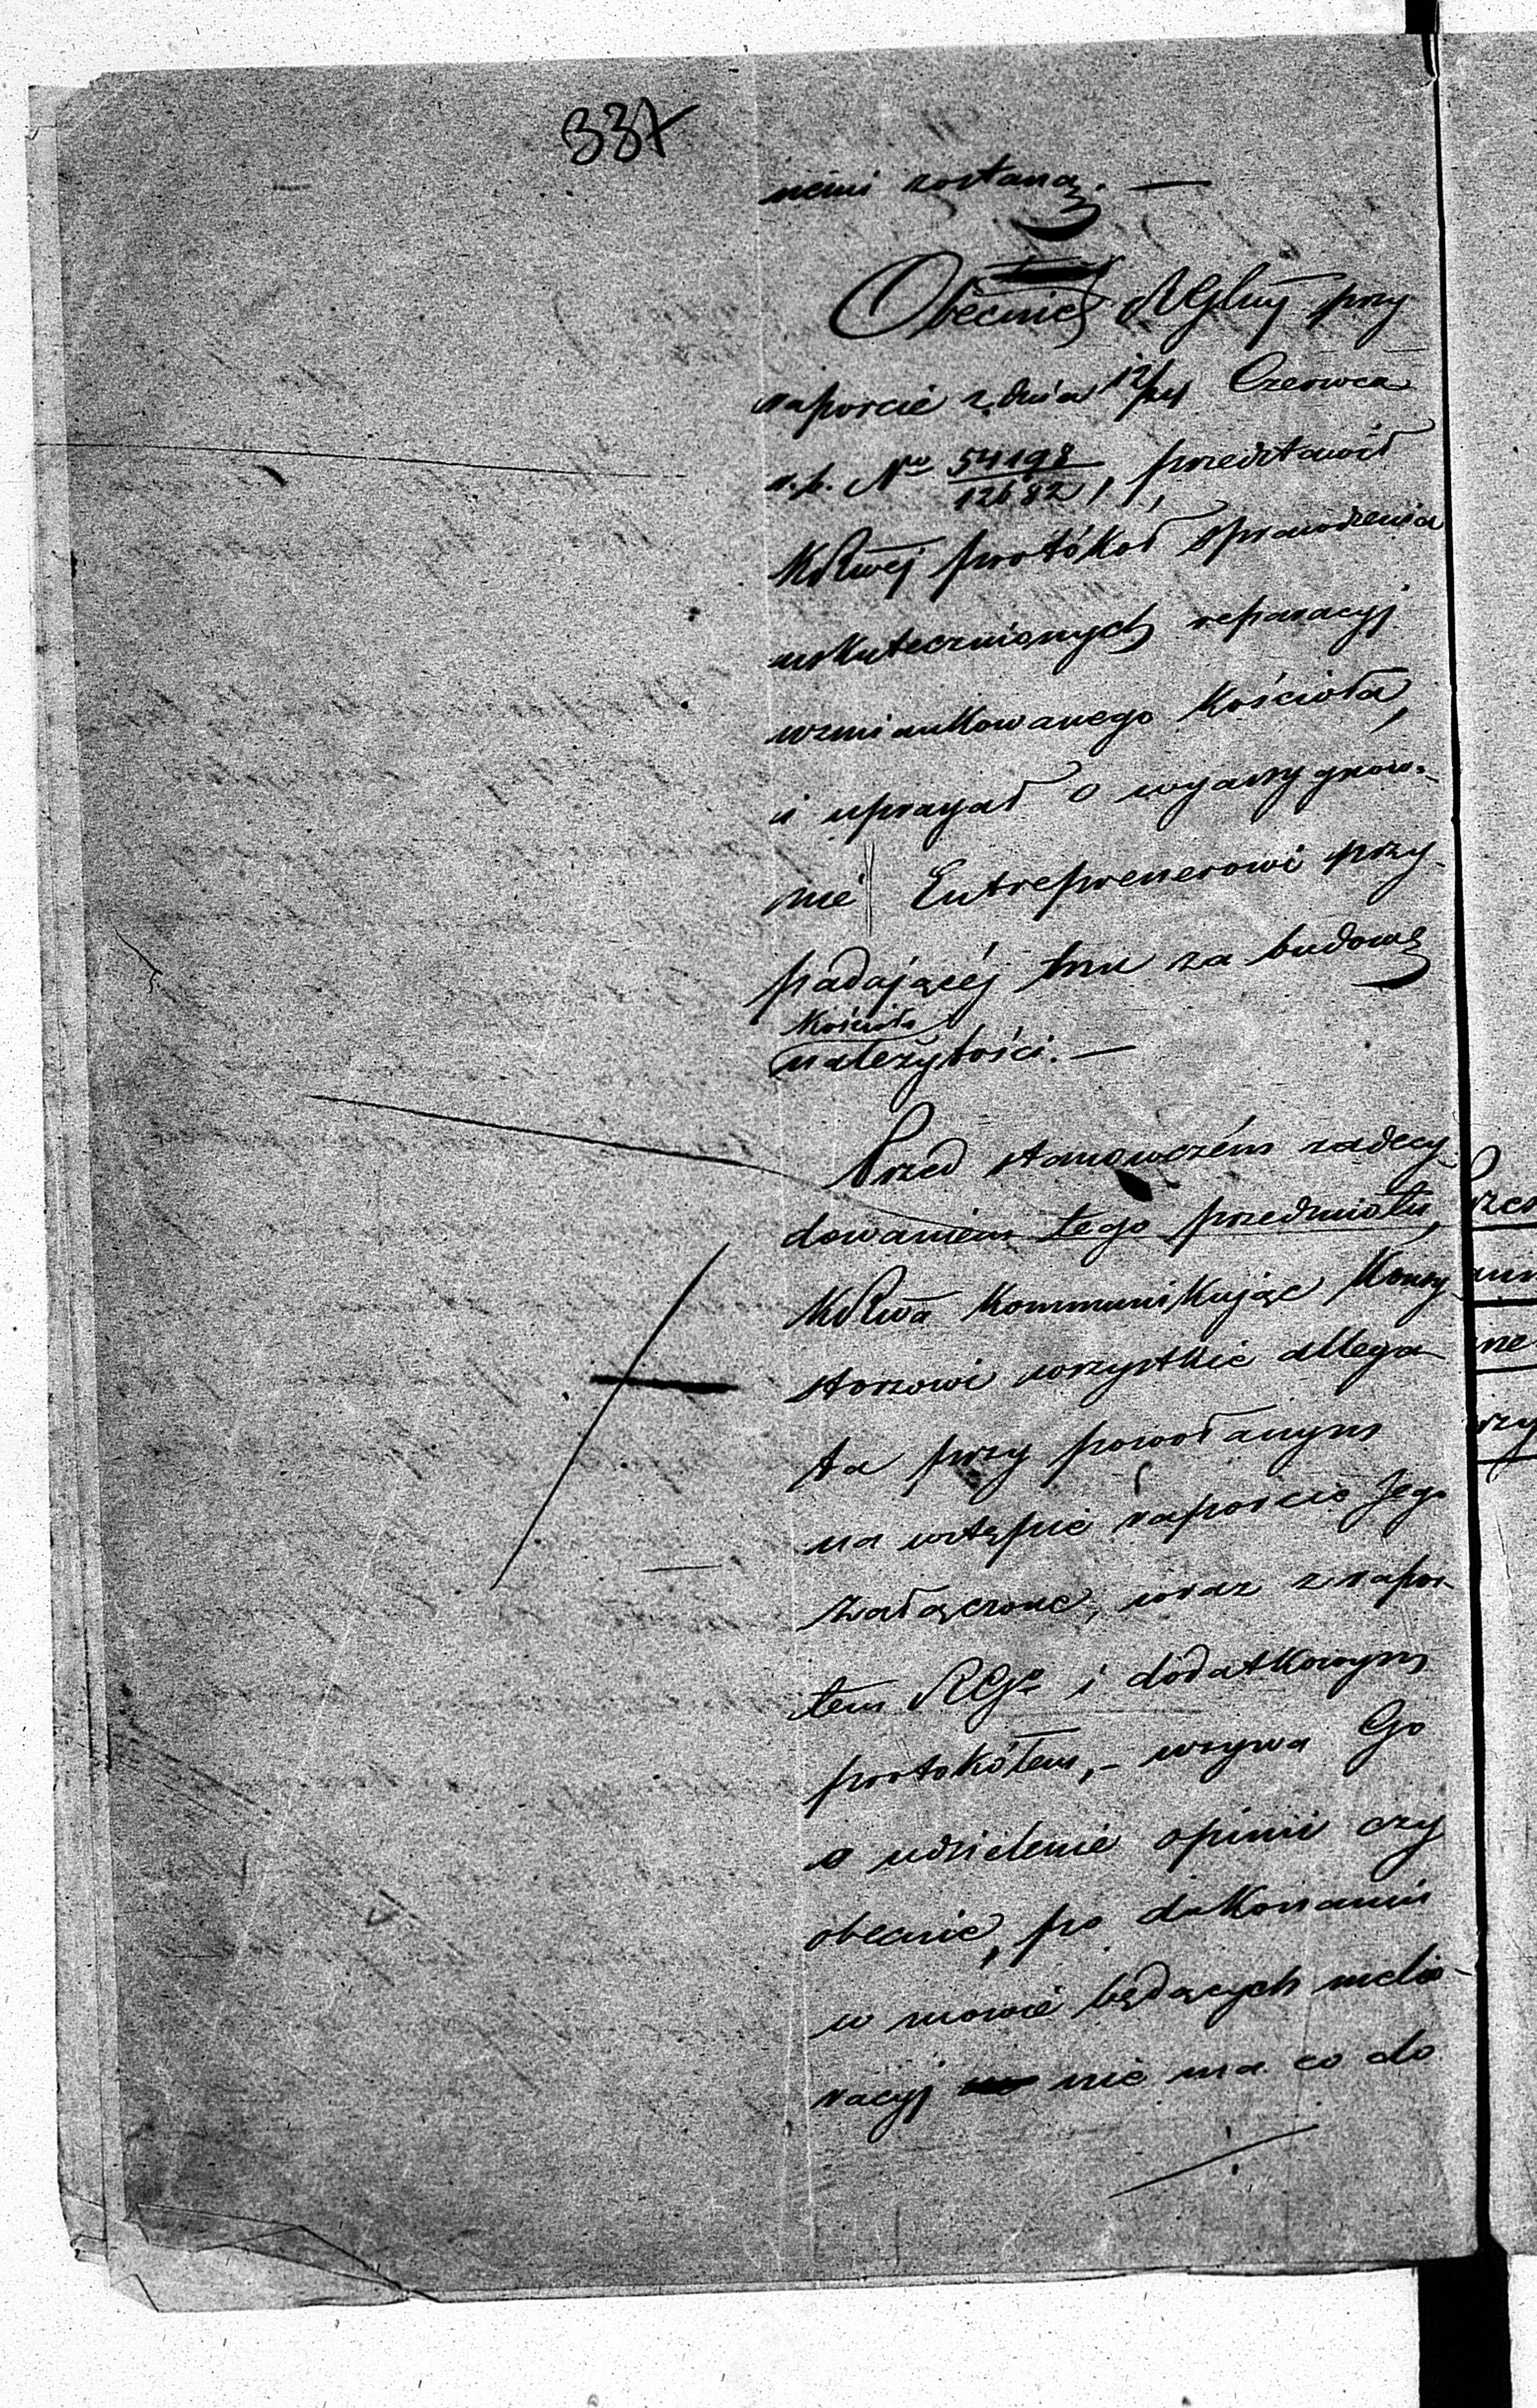 337
nemi zostaną. —
Obecnie RGlny przy
raporcie z dnia 12/24 Czerwca
r. b. No 54198/12682, przedstawił
KRwej protókoł sprawdzenia
uskutecznionych reparacyj
wzmiankowanego Kościoła,
i uprasza o wyassygnow-
nie Entreprenerowi przy-
padającéj mu za budowę
Kościoła
należytości. —
Przed stanowczém zadecy-
dowaniem tego przedmiotu,
KRwa kommunikując Konsy-
storzowi wszystkie allega-
ta przy powołanym
na wstępie raporcie Jego
załączone, wraz z rapor-
tem RGo i dodatkowym
protokółem, – wzywa Go
o udzielenie opinii czy
obecnie, po dokonaniu
w mowie będących melio-
racyj nie ma co do